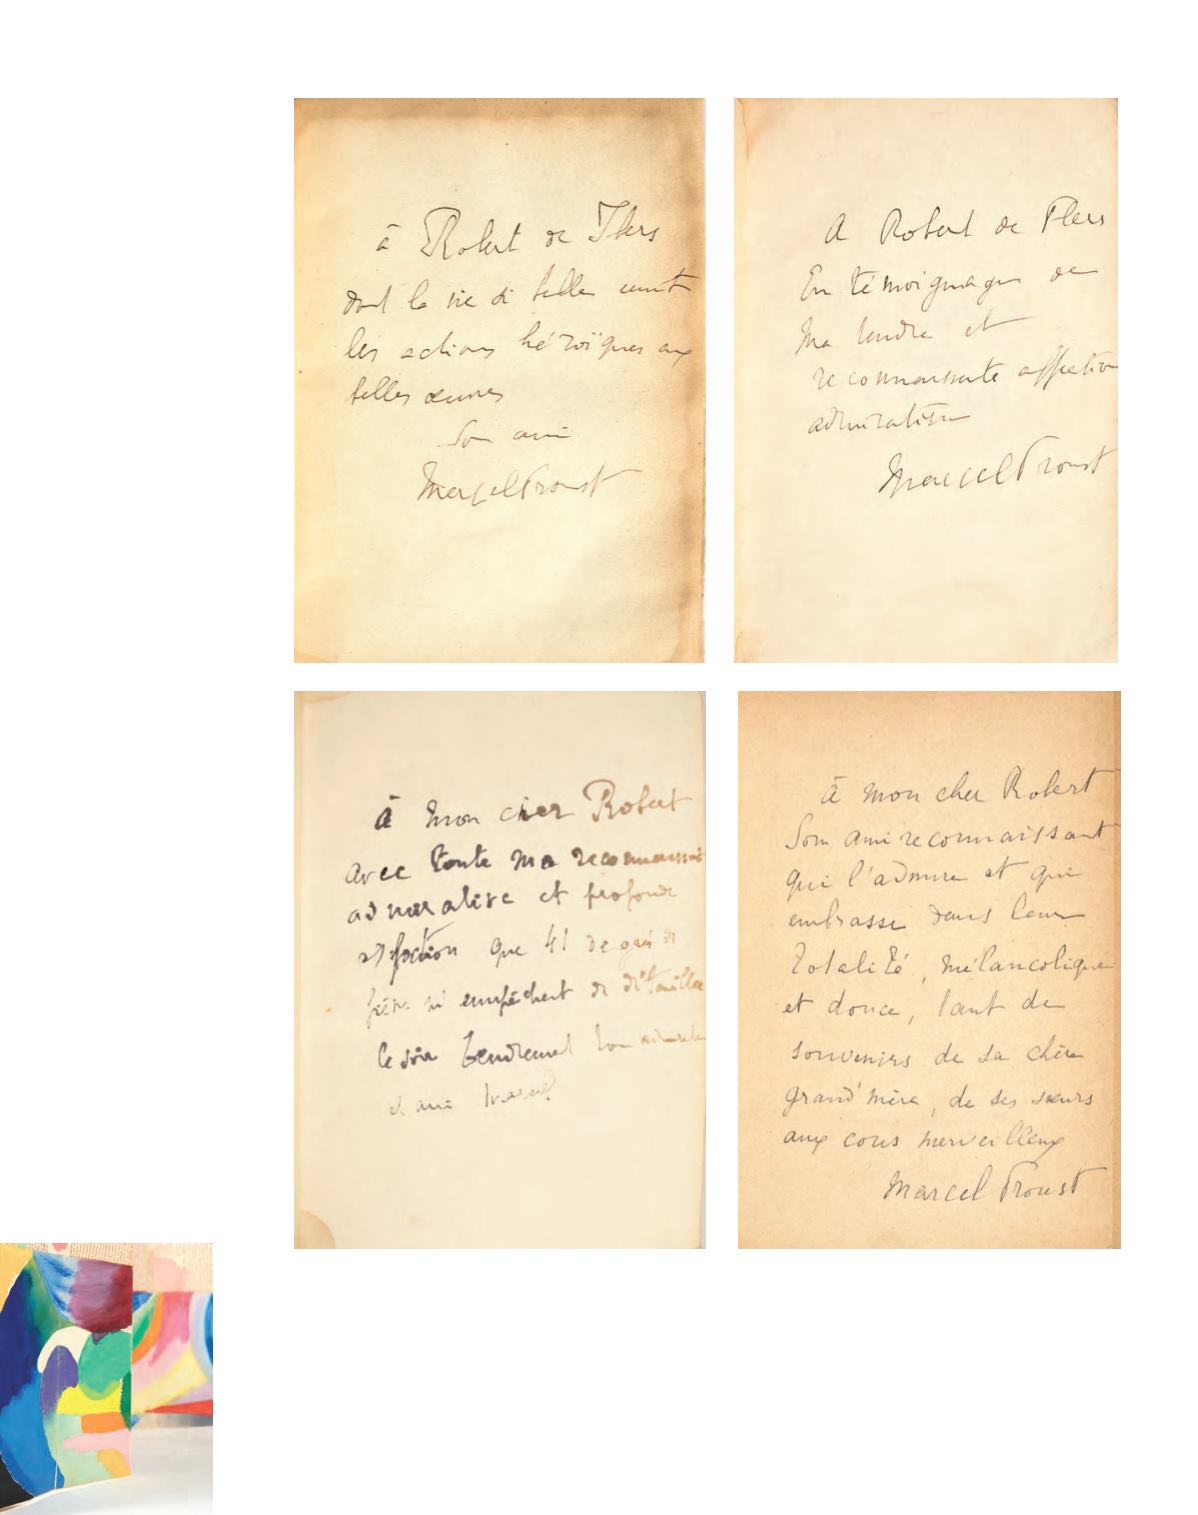 à Robert de Flers
dont la vie si belle unit
les actions héroïques aux
belles œuvres
Son ami
Marcel Proust
A Robert de Flers
En témoignage de
ma tendre et
reconnaissante affection
admiration
Marcel Proust
à mon cher Robert
avec toute ma reconnaissante
admirative et profonde
affection que 41 de
fièvre m'empêchent de détailler
ce soir tendrement son
et ami Marcel
à mon cher Robert
Son ami reconnaissant
qui l'admire et qui
embrasse dans leur
totalité, mélancolique
et douce, tant de
souvenirs de sa chère
grand'mère, de ses sœurs
aux cous merveilleux
Marcel Proust